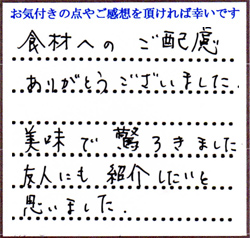 お気付きの点やご感想を頂ければ幸いです
食材への ご配慮
ありがとうございました.
美味で 驚ろきました
友人にも 紹介したいと
思いました.